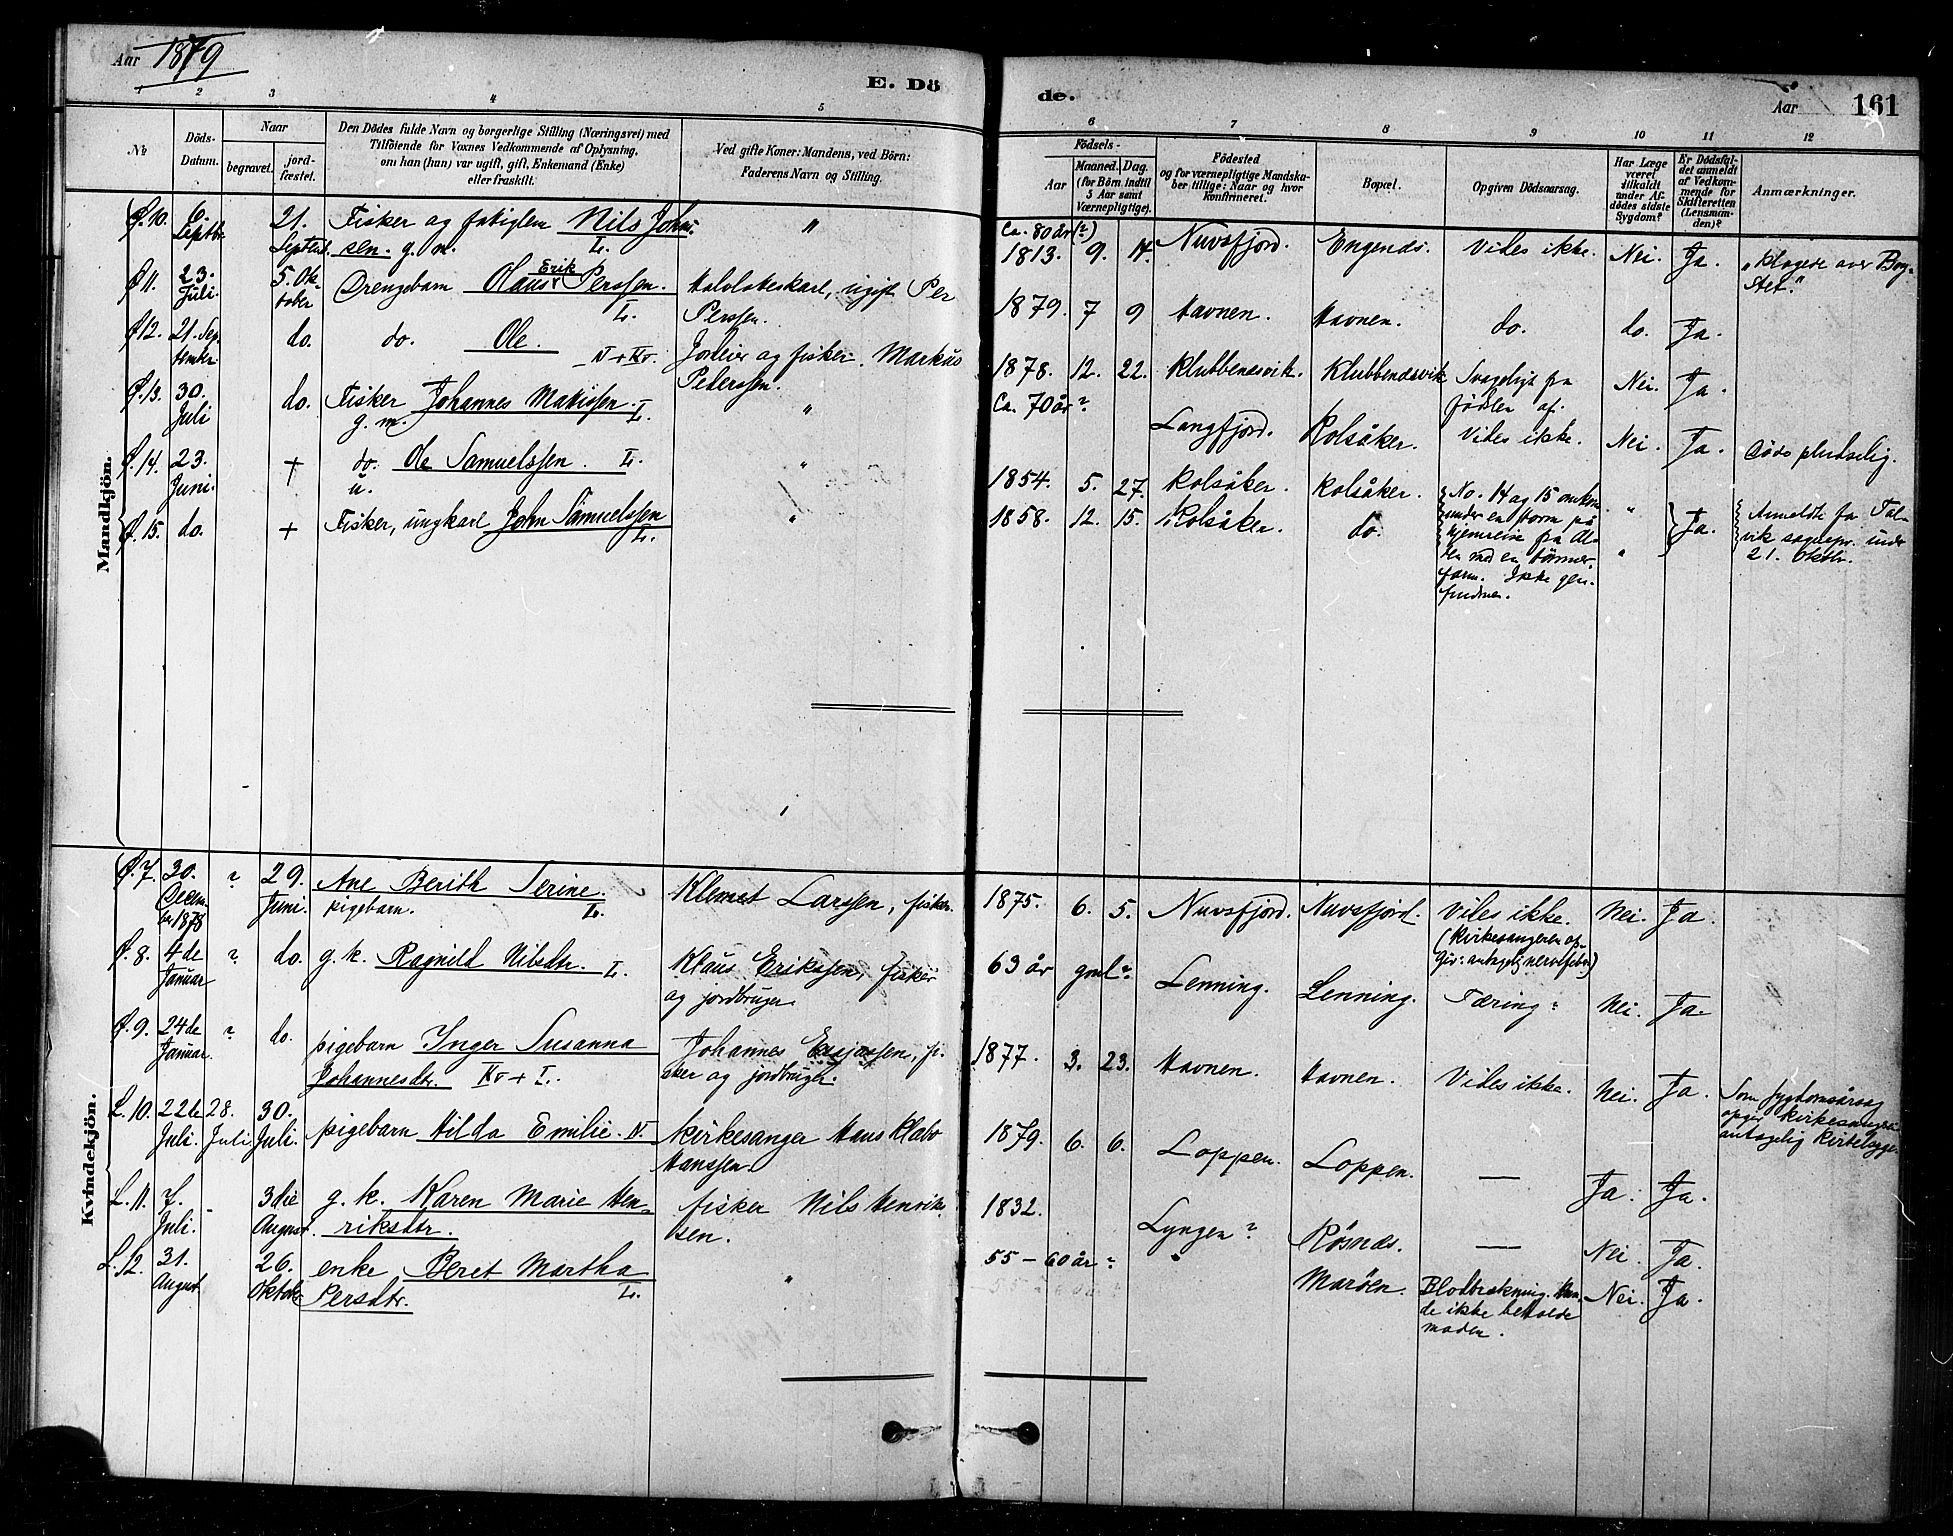 Aar 1879
E. Dö
de.
Aar
161
1 2 3 4 5
6 7 8 9 10 11 12
№
Döds-
Datum.
Naar
begravet.
jord-
fæstet.
Den Dödes fulde Navn og borgerlige Stilling (Næringsvei) med
Tilföiende for Voxnes Vedkommende af Oplysning,
om han (hun) var ugift, gift, Enkemand (Enke)
eller fraskilt.
Ved gifte Koner: Mandens, ved Börn:
Faderens Navn og Stilling.
Födsels-
Aar
Maaned. Dag.
(for Börn indtil
5 Aar samt
Værnepligtige).
Födested
og for værnepligtige Mandska-
ber tillige: Naar og hvor
konfirmeret.
Bopæl.
Opgiven Dödsaarsag.
Har Læge
været
tilkaldt
under Af-
dödes sidste
Sygdom?
Er Dödsfal-
det anmeldt
af Vedkom-
mende for
Skifteretten
(Lensman-
den)?
Anmærkninger.
Mandkjön.
Ø. 10. 6. Septbr. 21. Septbr.
Fisker og Nils John-
sen. g. m. L.
"
Ca. 80 år (?)
1813. 9. Nuvsfjord. Engenæs. Vides ikke. Nei. Ja.
"Klagede over Bry-
stet."
Ø. 11. 23. Juli. 5. Ok-
tober
Drengebarn Olaus Erik Perssen.
L.
ugift Per
Perssen.
1879. 7 9 Havnen. Havnen. do. do. Ja.
Ø. 12. 21. Sep-
tember do. do. Ole.
N + Kv.
Jordeier og fisker. Markus
Peterssen.
1878. 12. 22. Klubbenesvik. Klubbenesvik Svageligt fra
födslen af. Nei. Ja.
Ø. 13. 30. Juli do. Fisker Johannes Matissen.
g. m. L.
"
Ca. 70 år? Langfjord. Kolsåker. Vides ikke. Nei. Ja. Döde pludselig.
Ø. 14. 23. Juni. + do. Ole Samuelssen. L.
u.
"
1854. 5. 27. Kolsåker. Kolsåker.
Ø. 15. do. + Fisker, ungkarl John Samuelssen
L.
"
1858. 12. 15. Kolsåker. do.
No. 14 og 15 omkom
under en storm på
hjemreise fra Al-
ten med en tömmer-
farm. Ikke gen-
fundne.
" " Ja.
Anmeldt fra Tal-
vik sognepr. under
21. Oktbr.
Kvindekjön.
Ø. 7. 30. Decem-
ber 1878 ? 29. Juni.
Ane Berith Serine.
pigebarn. L.
Klemet Larssen, fisker.
1875. 6. 5. Nuvsfjord. Nuvsfjord. Vides ikke.
(Kirkesangeren op-
giv: antagelig nervefeber)
Nei. Ja.
Ø. 8. 4de Januar ? do. g. k. Ragnild Nilsdtr. L.
Klaus Erikssen, fisker
og jordbruger.
63 år gml? Lenning. Lenning. Tæring? Nei. Ja.
Ø. 9. 24de Januar. ? do. pigebarn Inger Susanna
Johannesdtr. Kv + L.
Johannes Esajassen, fi-
sker og jordbruger.
1877. 3. 23. Havnen. Havnen. Vides ikke. Nei. Ja.
Som sygdomsårsag
opgir kirkesangeren
antagelig
L. 10. 22de Juli. 28. Juli 30. Juli.
pigebarn Hilda Emilie. N.
Kirkesanger Hans Klæbo
Hanssen.
1879. 6. 6. Loppen. Loppen. — Ja. Ja.
L. 11. 7. Juli. - 3die August.
g. k. Karen Marie Hen-
riksdtr.
fisker Nils Henrik-
sen.
1832. Lyngen? Rösnæs. — Nei. Ja.
L. 12. 31. August. 26. Oktober
enke Beret Martha
Persdtr. L.
"
55 – 60 år? " Maröen. Blodbrækning. Kun-
de ikke beholde
maden.
Nei. Ja.